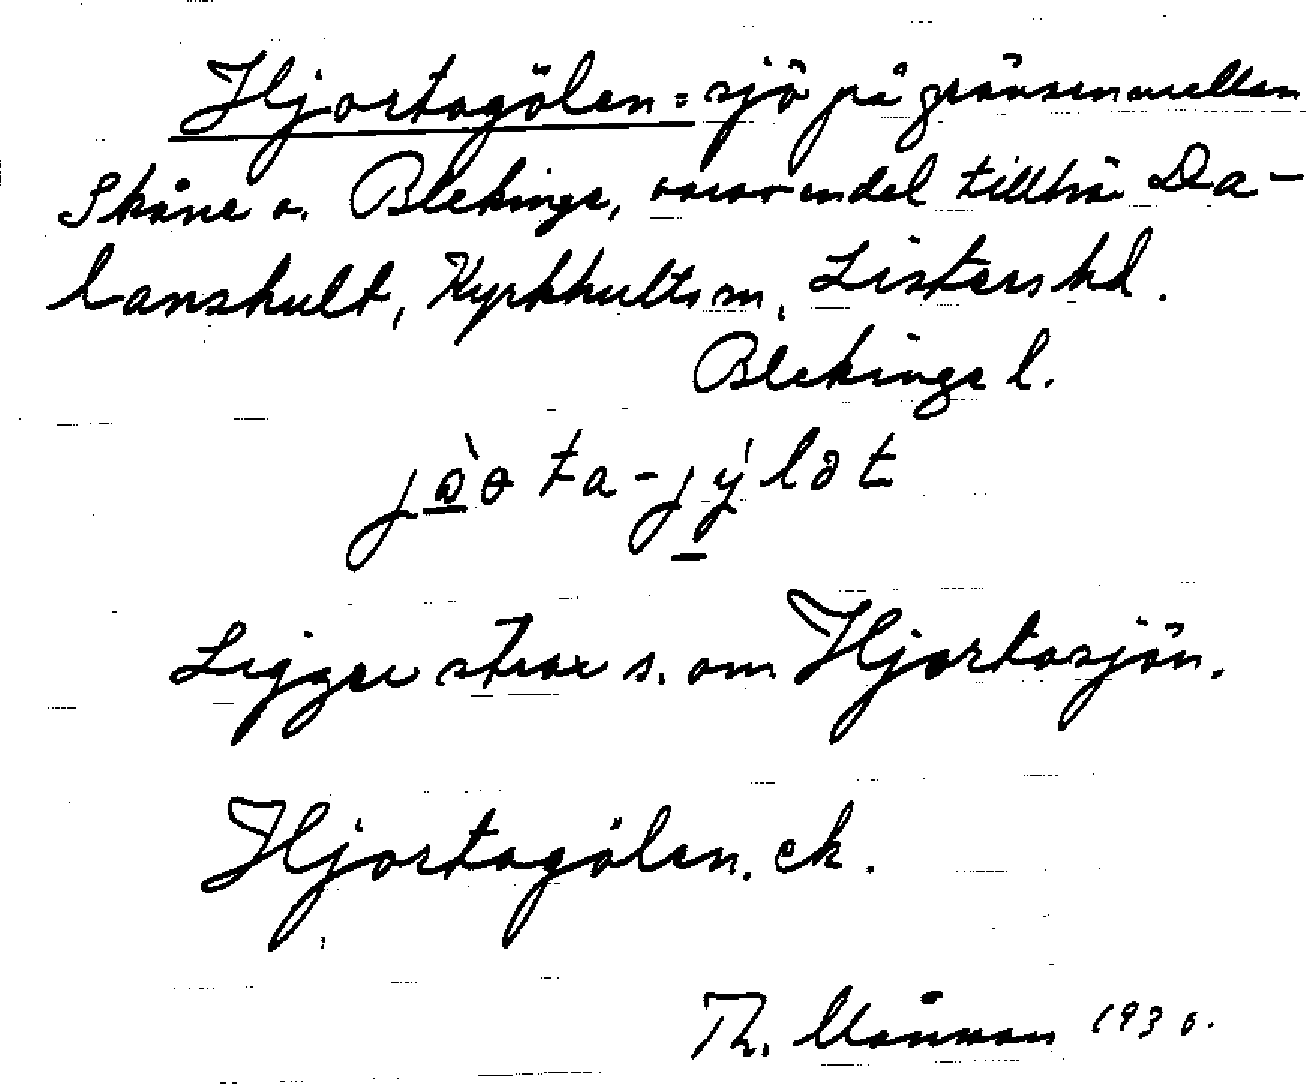 Hjortagölen = sjö på gränsen mellan
Skåne o. Blekinge, varav en del tillhör Da-
lanshult, Kyrkhults sn, Listers hd.
Blekinge l.
Ligger strax s. om Hjortasjön.
Hjortagölen. ek.
Th. 1930.